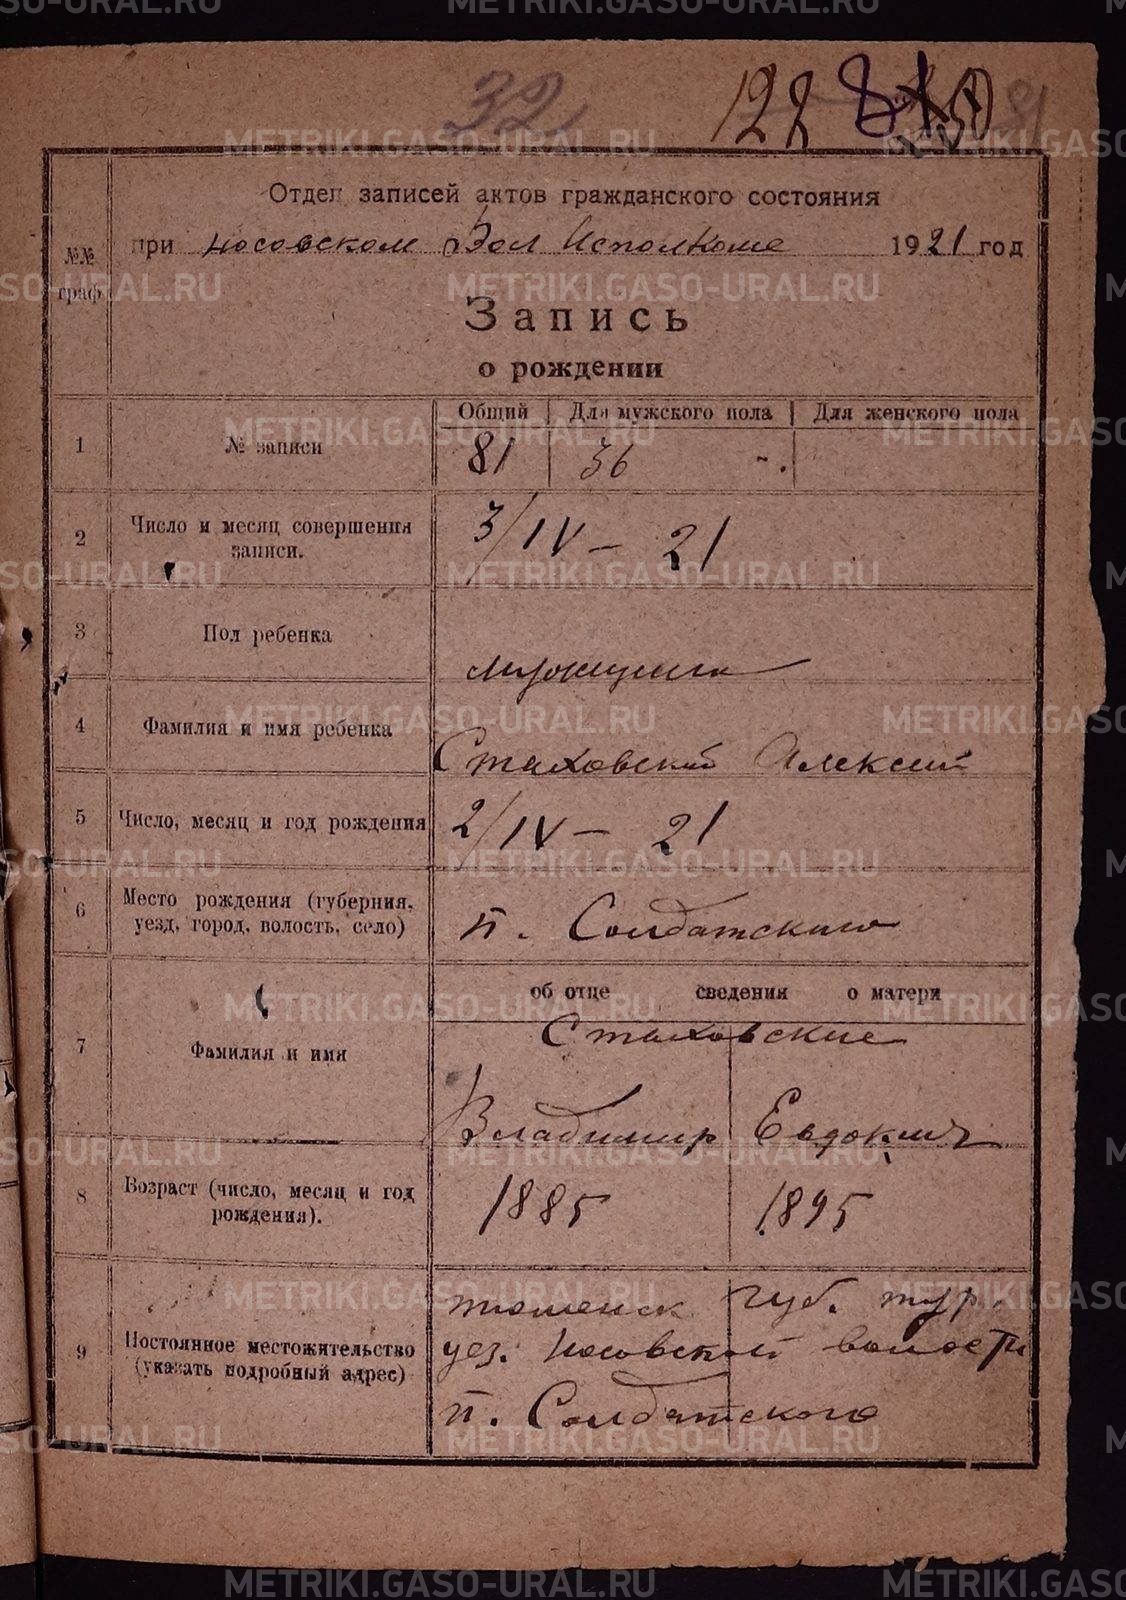 32
122 81
Отдел записей актов гражданского состояния
при носовском Вол Исполкоме 1921 год
№№ граф
Запись
о рождении
Общий Для мужского пола Для женского пола
1 № записи 81 36 -.
2 Число и месяц совершения записи. 3/IV – 21
3 Пол ребенка мужчина
4 Фамилия и имя ребенка Стаховский Алексий
5 Число, месяц и год рождения 2/IV – 21
6 Место рождения (губерния, уезд, город, волость, село) п. Солдатского
об отце сведения о матери
7 Фамилия и имя Стаховские
Владимир Евдокия
8 Возраст (число, месяц и год рождения). 1885 1895
9 Постоянное местожительство (указать подробный адрес) тюменск губ. тур.
уез. Носовской волости
п. Солдатского
METRIKI.GASO-URAL.RU